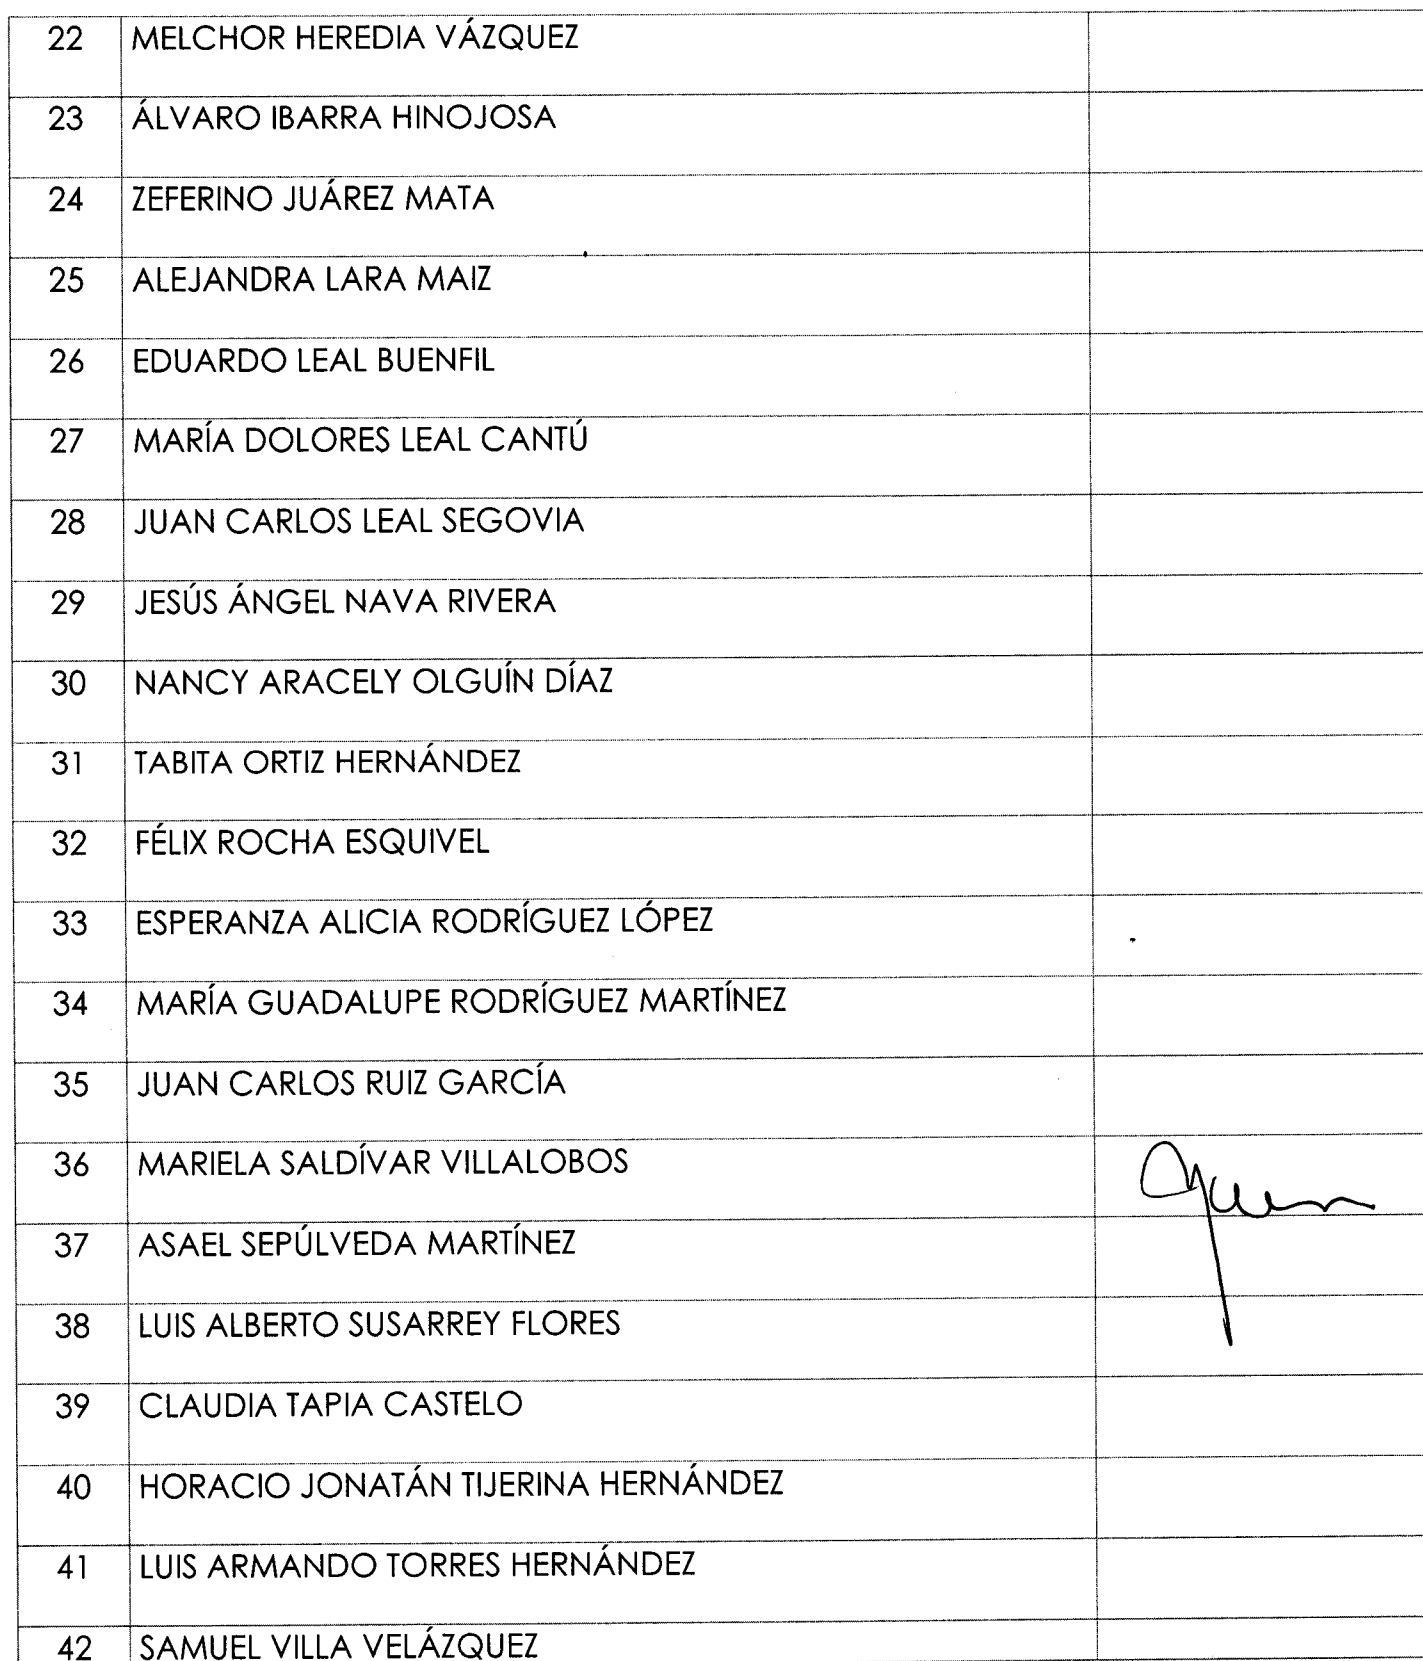 22 MELCHOR HEREDIA VÁZQUEZ
23 ÁLVARO IBARRA HINOJOSA
24 ZEFERINO JUÁREZ MATA
25 ALEJANDRA LARA MAIZ
26 EDUARDO LEAL BUENFIL
27 MARÍA DOLORES LEAL CANTÚ
28 JUAN CARLOS LEAL SEGOVIA
29 JESÚS ÁNGEL NAVA RIVERA
30 NANCY ARACELY OLGUÍN DÍAZ
31 TABITA ORTIZ HERNÁNDEZ
32 FÉLIX ROCHA ESQUIVEL
33 ESPERANZA ALICIA RODRÍGUEZ LÓPEZ
34 MARÍA GUADALUPE RODRÍGUEZ MARTÍNEZ
35 JUAN CARLOS RUIZ GARCÍA
36 MARIELA SALDÍVAR VILLALOBOS
37 ASAEL SEPÚLVEDA MARTÍNEZ
38 LUIS ALBERTO SUSARREY FLORES
39 CLAUDIA TAPIA CASTELO
40 HORACIO JONATÁN TIJERINA HERNÁNDEZ
41 LUIS ARMANDO TORRES HERNÁNDEZ
42 SAMUEL VILLA VELÁZQUEZ